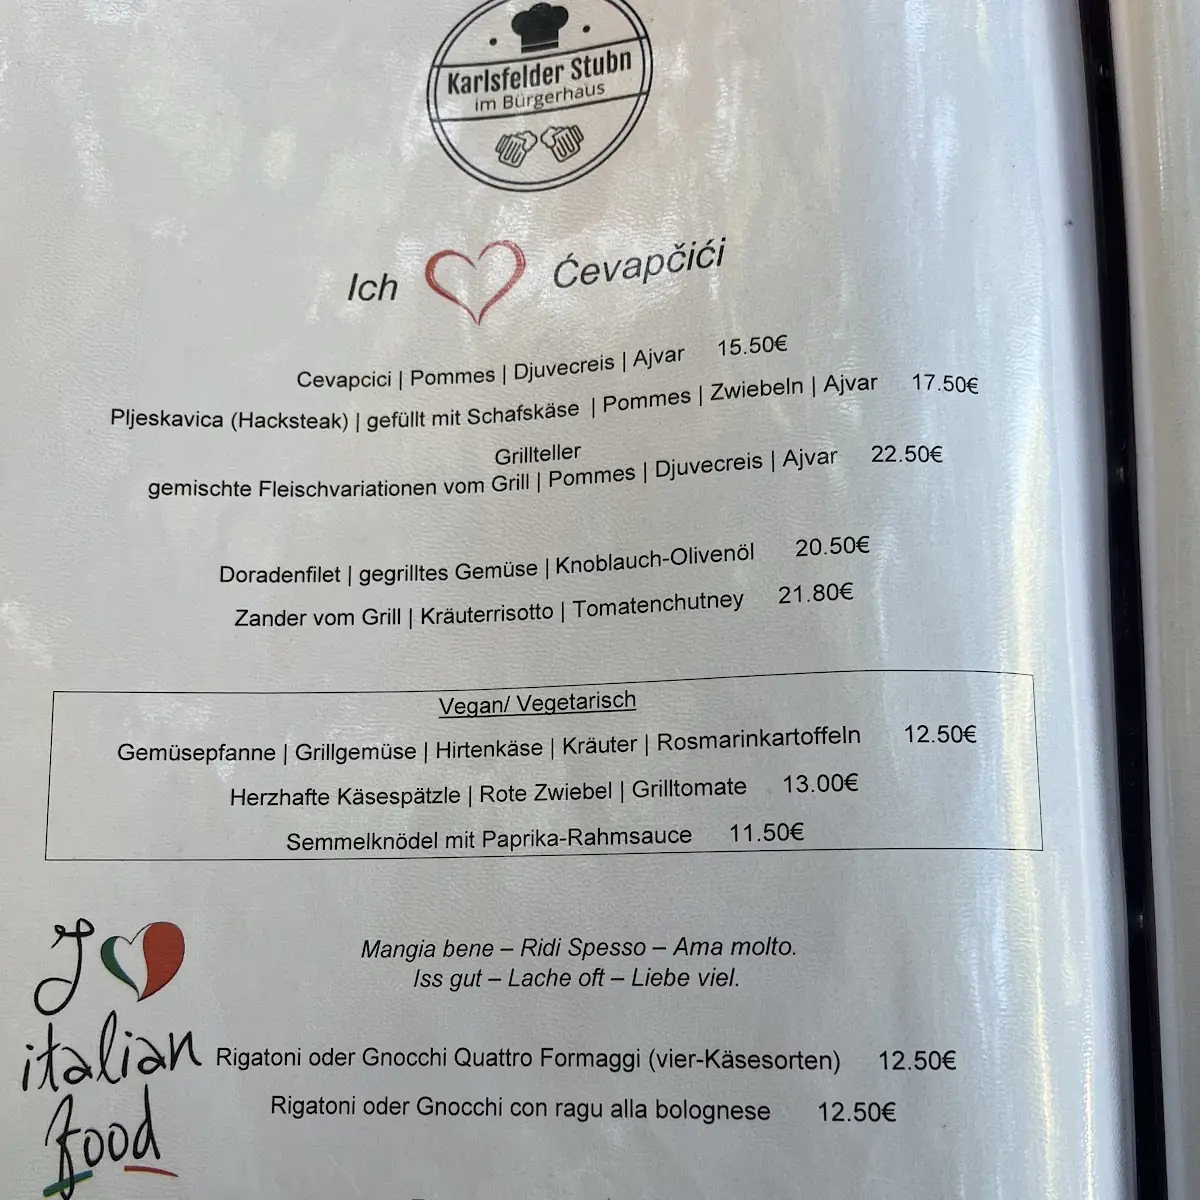 Karlsfelder Stubn
im Bürgerhaus
Ich Ćevapčići
Cevapcici | Pommes | Djuvecreis | Ajvar 15.50€
Pljeskavica (Hacksteak) | gefüllt mit Schafskäse | Pommes | Zwiebeln | Ajvar 17.50€
Grillteller
gemischte Fleischvariationen vom Grill | Pommes | Djuvecreis | Ajvar 22.50€
Doradenfilet | gegrilltes Gemüse | Knoblauch-Olivenöl 20.50€
Zander vom Grill | Kräuterrisotto | Tomatenchutney 21.80€
Vegan/ Vegetarisch
Gemüsepfanne | Grillgemüse | Hirtenkäse | Kräuter | Rosmarinkartoffeln 12.50€
Herzhafte Käsespätzle | Rote Zwiebel | Grilltomate 13.00€
Semmelknödel mit Paprika-Rahmsauce 11.50€
I
italian
food
Mangia bene – Ridi Spesso – Ama molto.
Iss gut – Lache oft – Liebe viel.
Rigatoni oder Gnocchi Quattro Formaggi (vier-Käsesorten) 12.50€
Rigatoni oder Gnocchi con ragu alla bolognese 12.50€